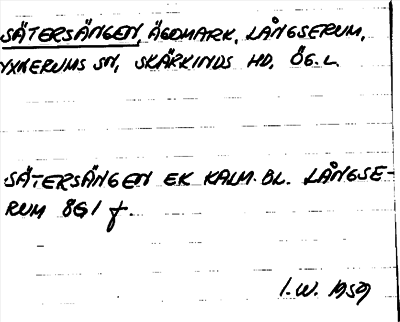 SÄTERSÄNGEN, ÄGOMARK, LÅNGSERUM,
YXNERUMS SN, SKÄRKINDS HD, ÖG.L.
SÄTERSÄNGEN EK KALM.BL. LÅNGSE-
RUM 8G1 f.
I.W. 1959